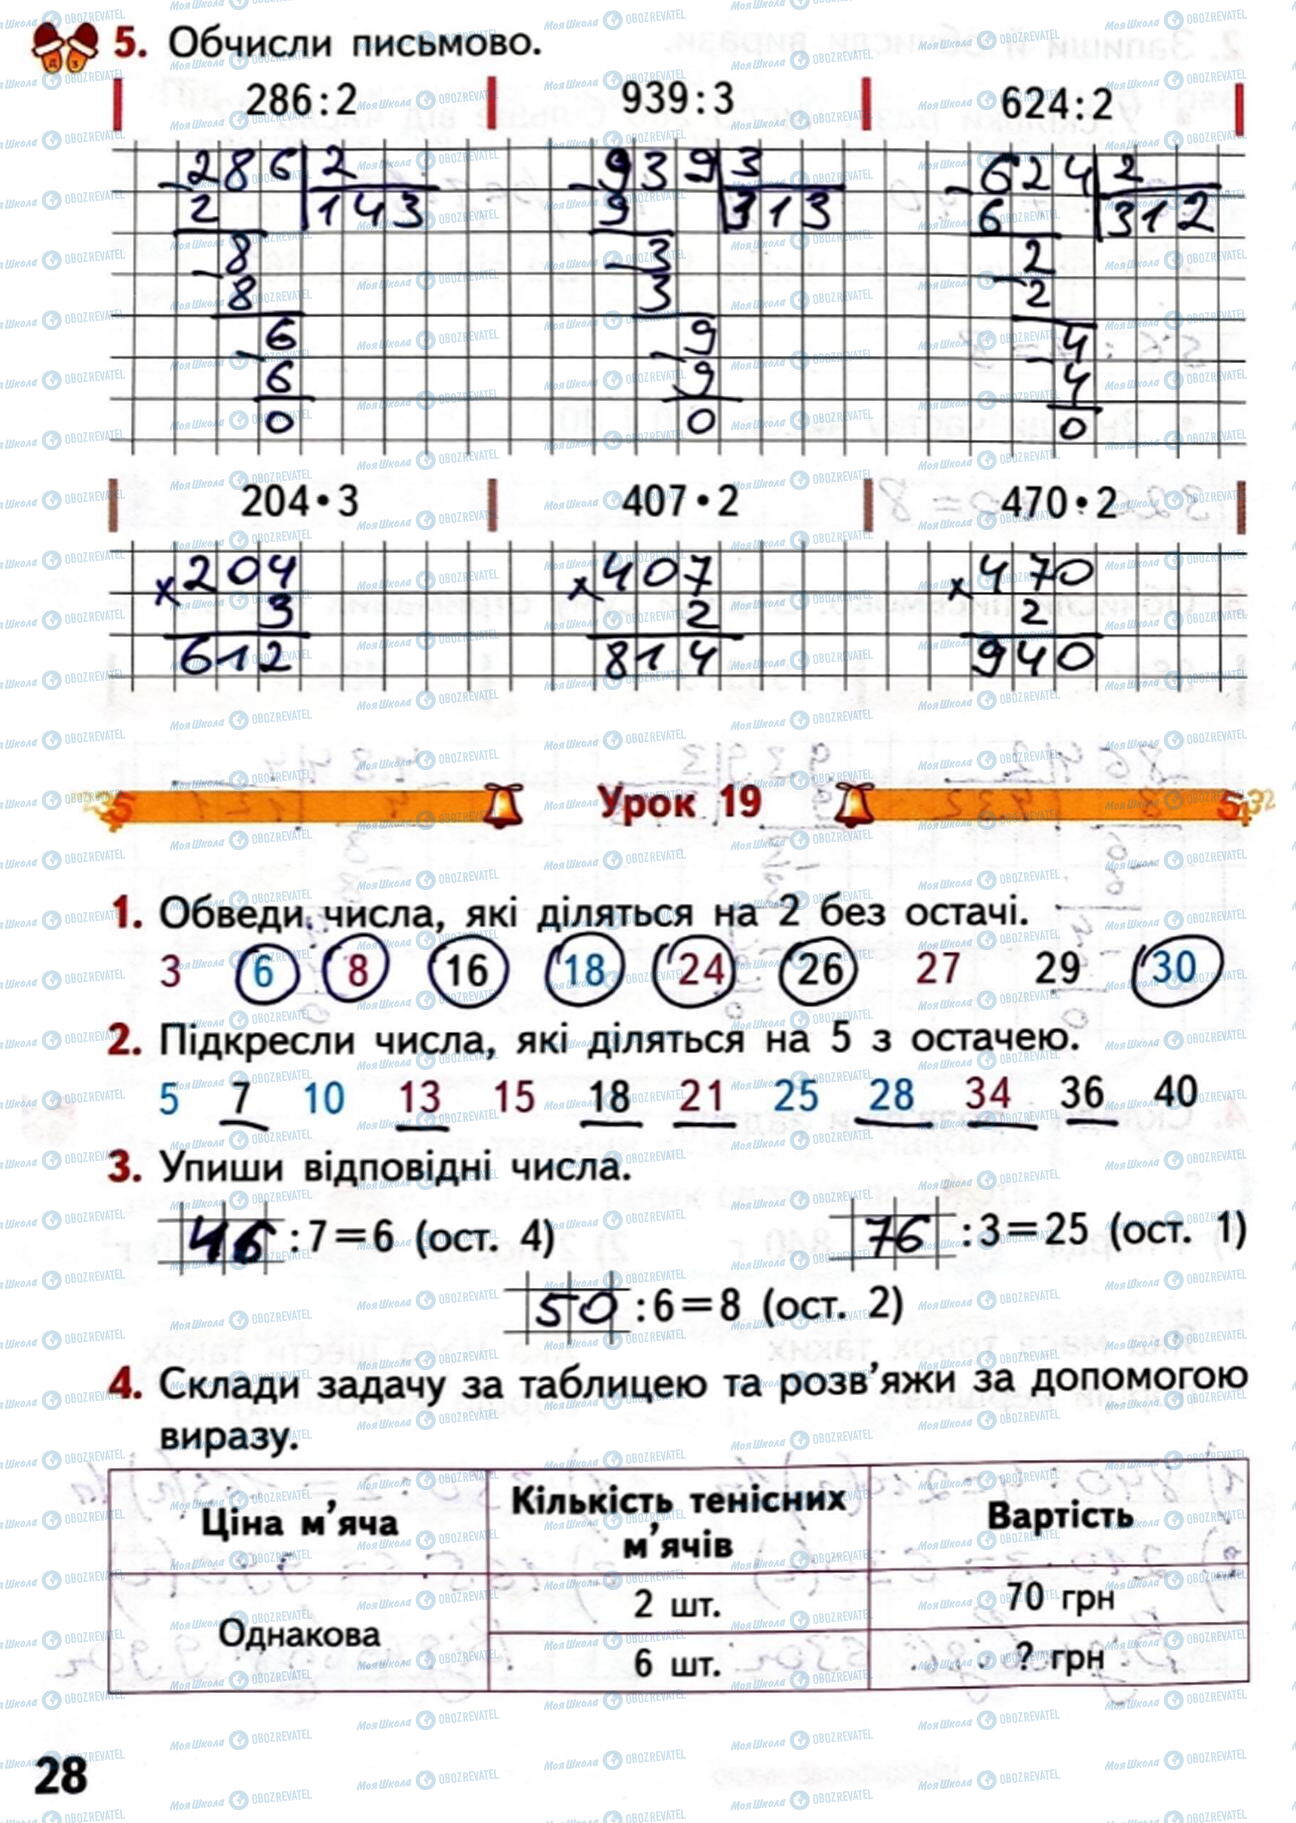 5. Обчисли письмово.
286:2 939:3 624:2
286 2 939 3 624 2
2 143 9 313 6 312
8 3 2
8 3 2
6 9 4
6 9 4
0 0 0
204•3 407•2 470•2
×204 ×407 ×470
3 2 2
612 814 940
Урок 19
1. Обведи числа, які діляться на 2 без остачі.
3 6 8 16 18 24 26 27 29 30
2. Підкресли числа, які діляться на 5 з остачею.
5 7 10 13 15 18 21 25 28 34 36 40
3. Упиши відповідні числа.
46:7=6 (ост. 4) 76:3=25 (ост. 1)
50:6=8 (ост. 2)
4. Склади задачу за таблицею та розв'яжи за допомогою
виразу.
Ціна м'яча Кількість тенісних м'ячів Вартість
Однакова 2 шт. 70 грн
6 шт. ? грн
28
МояШкола OBOZREVATEL